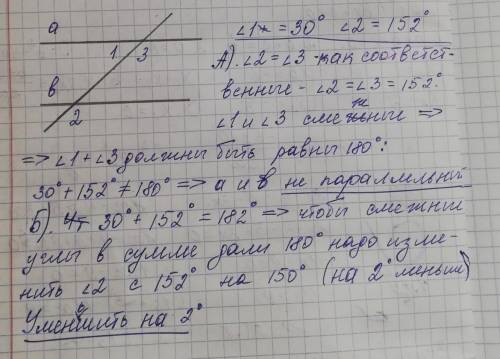 a
1 3
в
2
∠1 = 30° ∠2 = 152°
А). ∠2 = ∠3 - как соответст-
венные - ∠2 = ∠3 = 152°.
∠1 и ∠3 смежные =>
=> ∠1 + ∠3 должны быть равны 180°:
30° + 152° ≠ 180° => а и в не параллельны
Б). 30° + 152° = 182° => чтобы смежные
углы в сумме дали 180° надо изме-
нить ∠2 с 152° на 150° (на 2° меньше)
Уменьшить на 2°